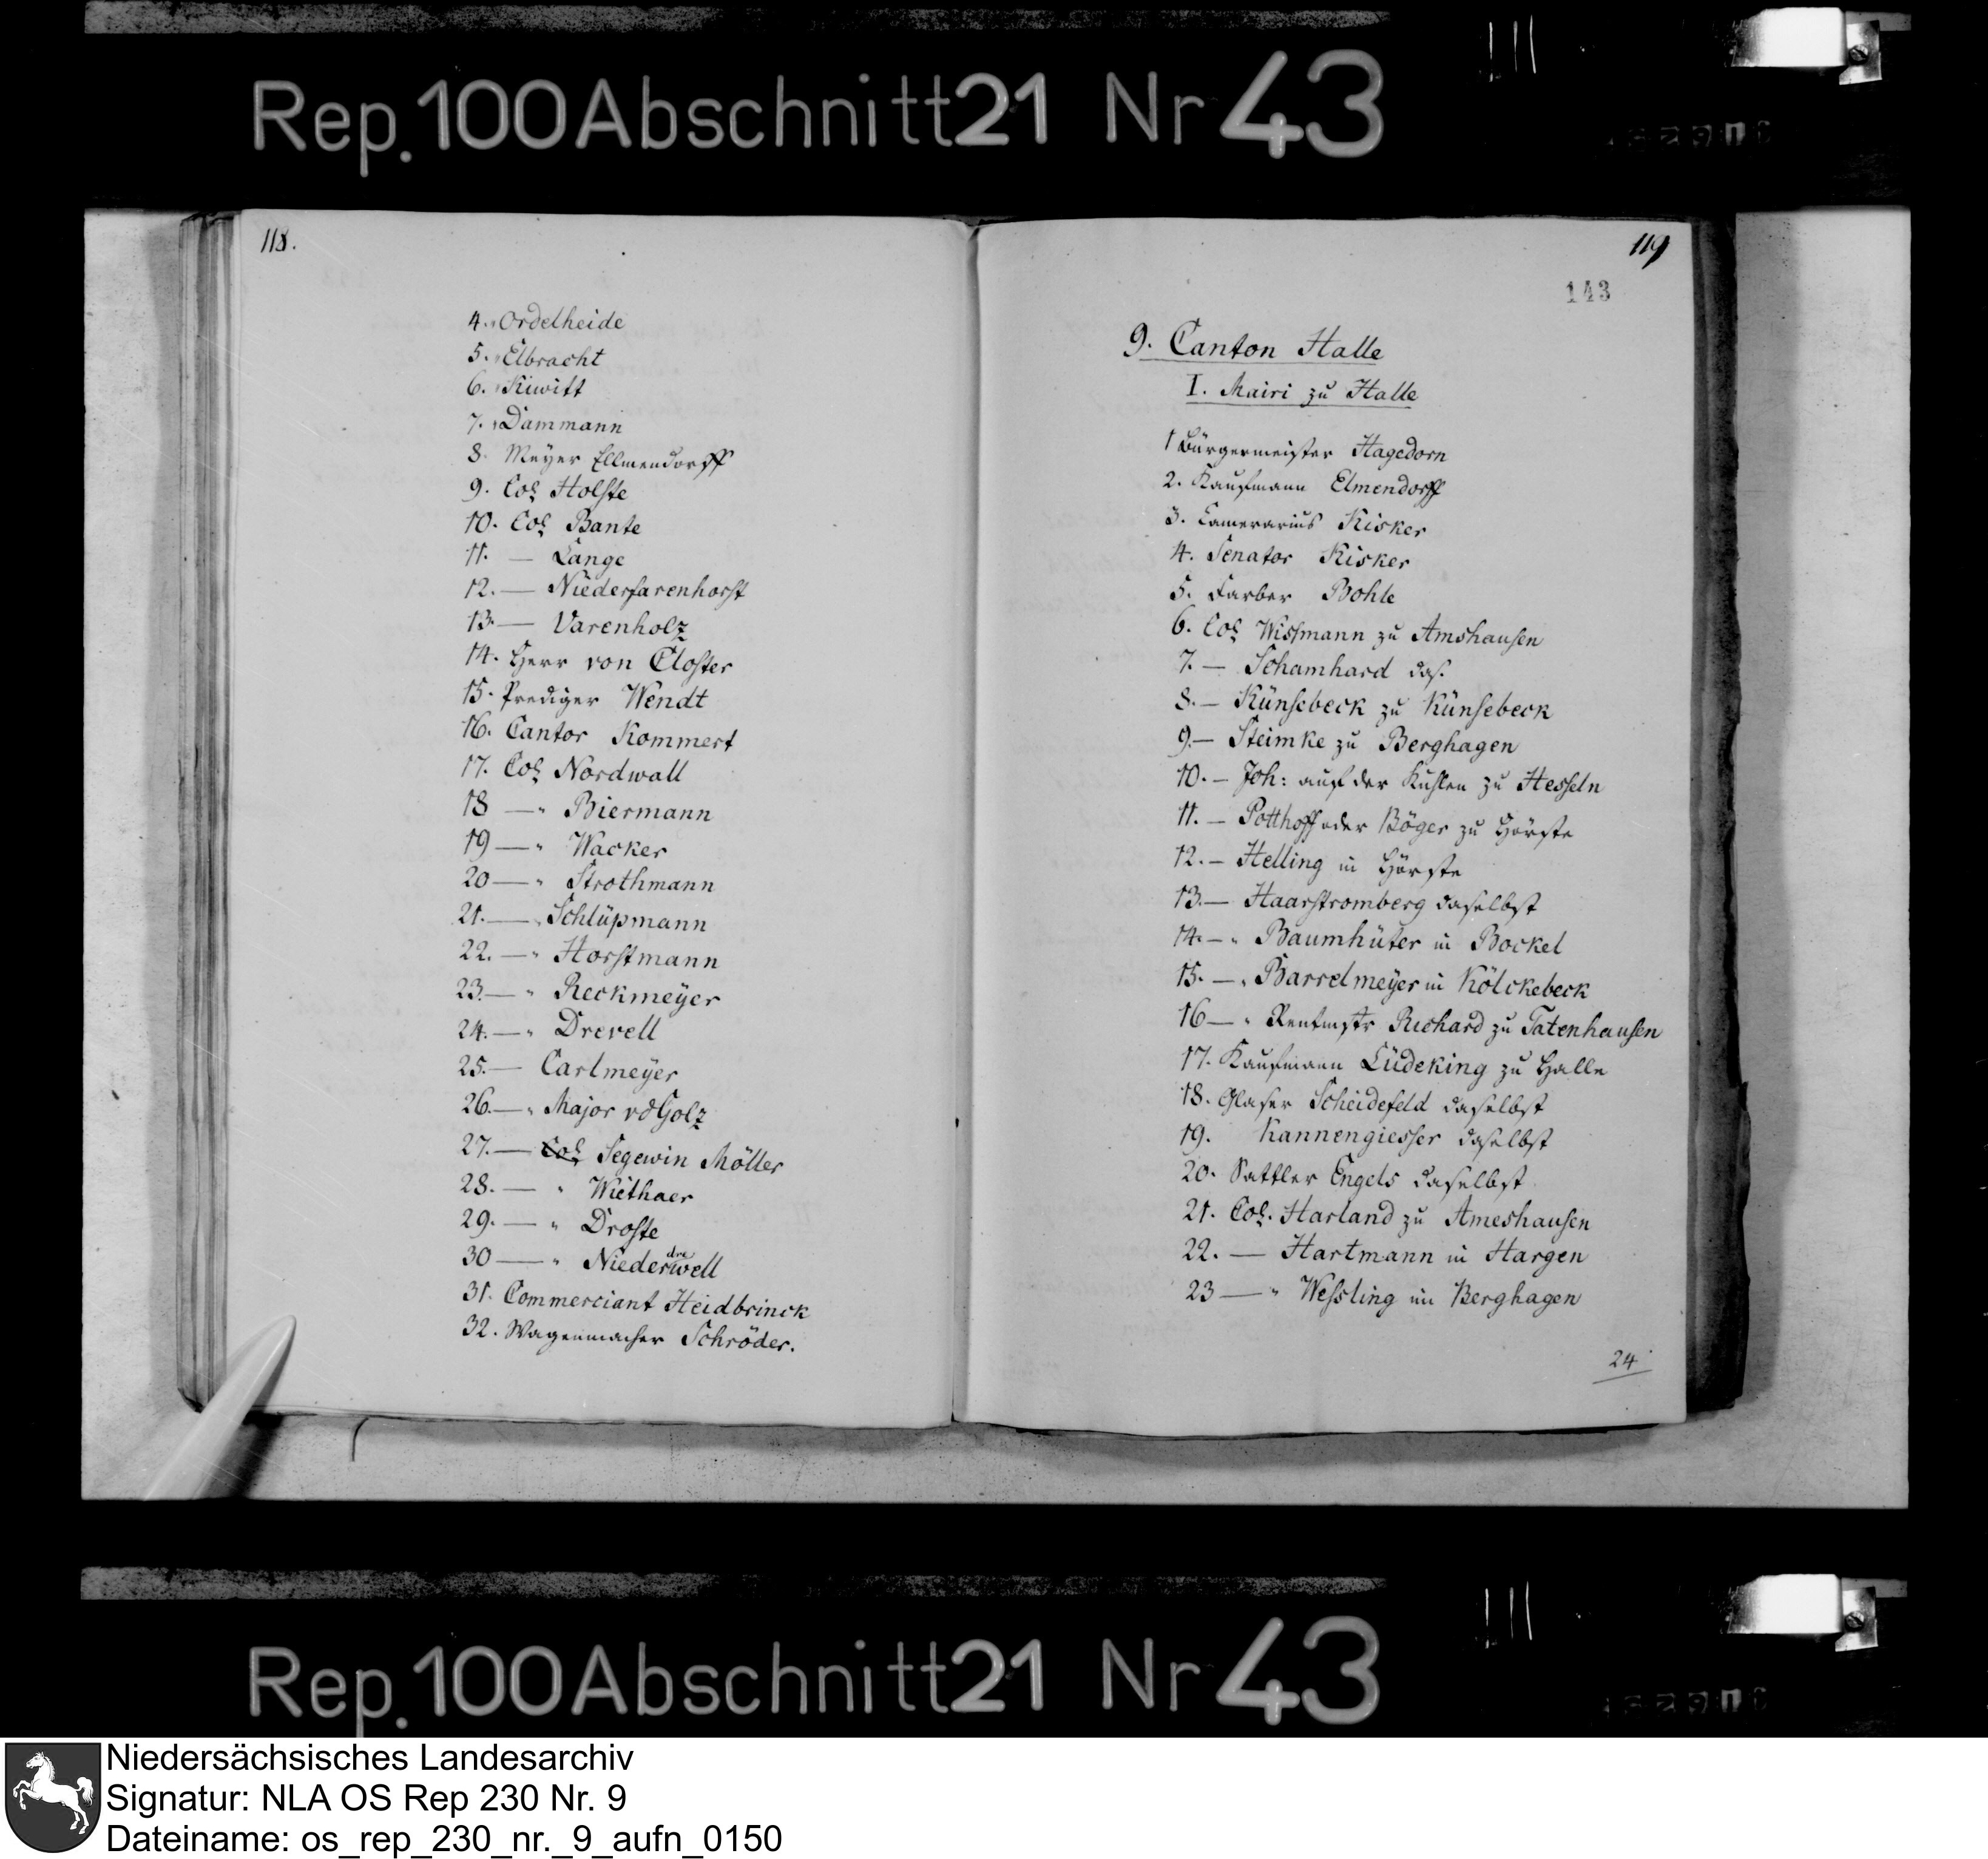 Rep. 100 Abschnitt 21 Nr 43
118.
4. " Ordelheide
5. " Elbracht
6. " Kiwitt
7. " Dammann
8. Meyer Ellmendorff
9. Col Holste
10. Col Bante
11. — Lange
12. — Niederfarenhorst
13. — Varenholz
14. Herr von Closter
15. Prediger Wendt
16. Cantor Kommert
17. Col Nordwall
18 — " Biermann
19 — " Wacker
20 — " Strothmann
21. — " Schlüpmann
22. — " Horstmann
23. — " Reckmeÿer
24. — " Drevell
25. — Carlmeÿer
26. — " Major vd Golz
27. — Col Segewin Möller
28. — " Wiethaer
29. — " Droste
30 — " Niederdrewell
31. Commerciant Heidbrinck
32. Wagenmacher Schröder.
119
143
9. Canton Halle
I. Mairi zu Halle
1 Bürgermeister Hagedorn
2. Kaufmann Elmendorff
3. Camerarius Kisker
4. Senator Kisker
5. Farber Bohle
6. Col Wissmann zu Amshausen
7. — Schamhard das.
8. — Künsebeck zu Künsebeck
9. — Steimke zu Berghagen
10. — Joh: auf der Kuhlen zu Hesseln
11. — Potthoff oder Böger zu Hörste
12. — Helling in Hörste
13. — Haarstromberg daselbst
14. — " Baumhüter in Bockel
15. — " Barrelmeÿer in Kölckebeck
16 — " Rentmstr Richard zu Tatenhausen
17. Kaufmann Lüdeking zu Halle
18. Glaser Scheidefeld daselbst
19. Kannengiesser daselbst
20. Sattler Engels daselbst
21. Col. Harland zu Ameshausen
22. — Hartmann in Hargen
23 — " Wessling in Berghagen
24
Rep. 100 Abschnitt 21 Nr 43
Niedersächsisches Landesarchiv
Signatur: NLA OS Rep 230 Nr. 9
Dateiname: os_rep_230_nr._9_aufn_0150